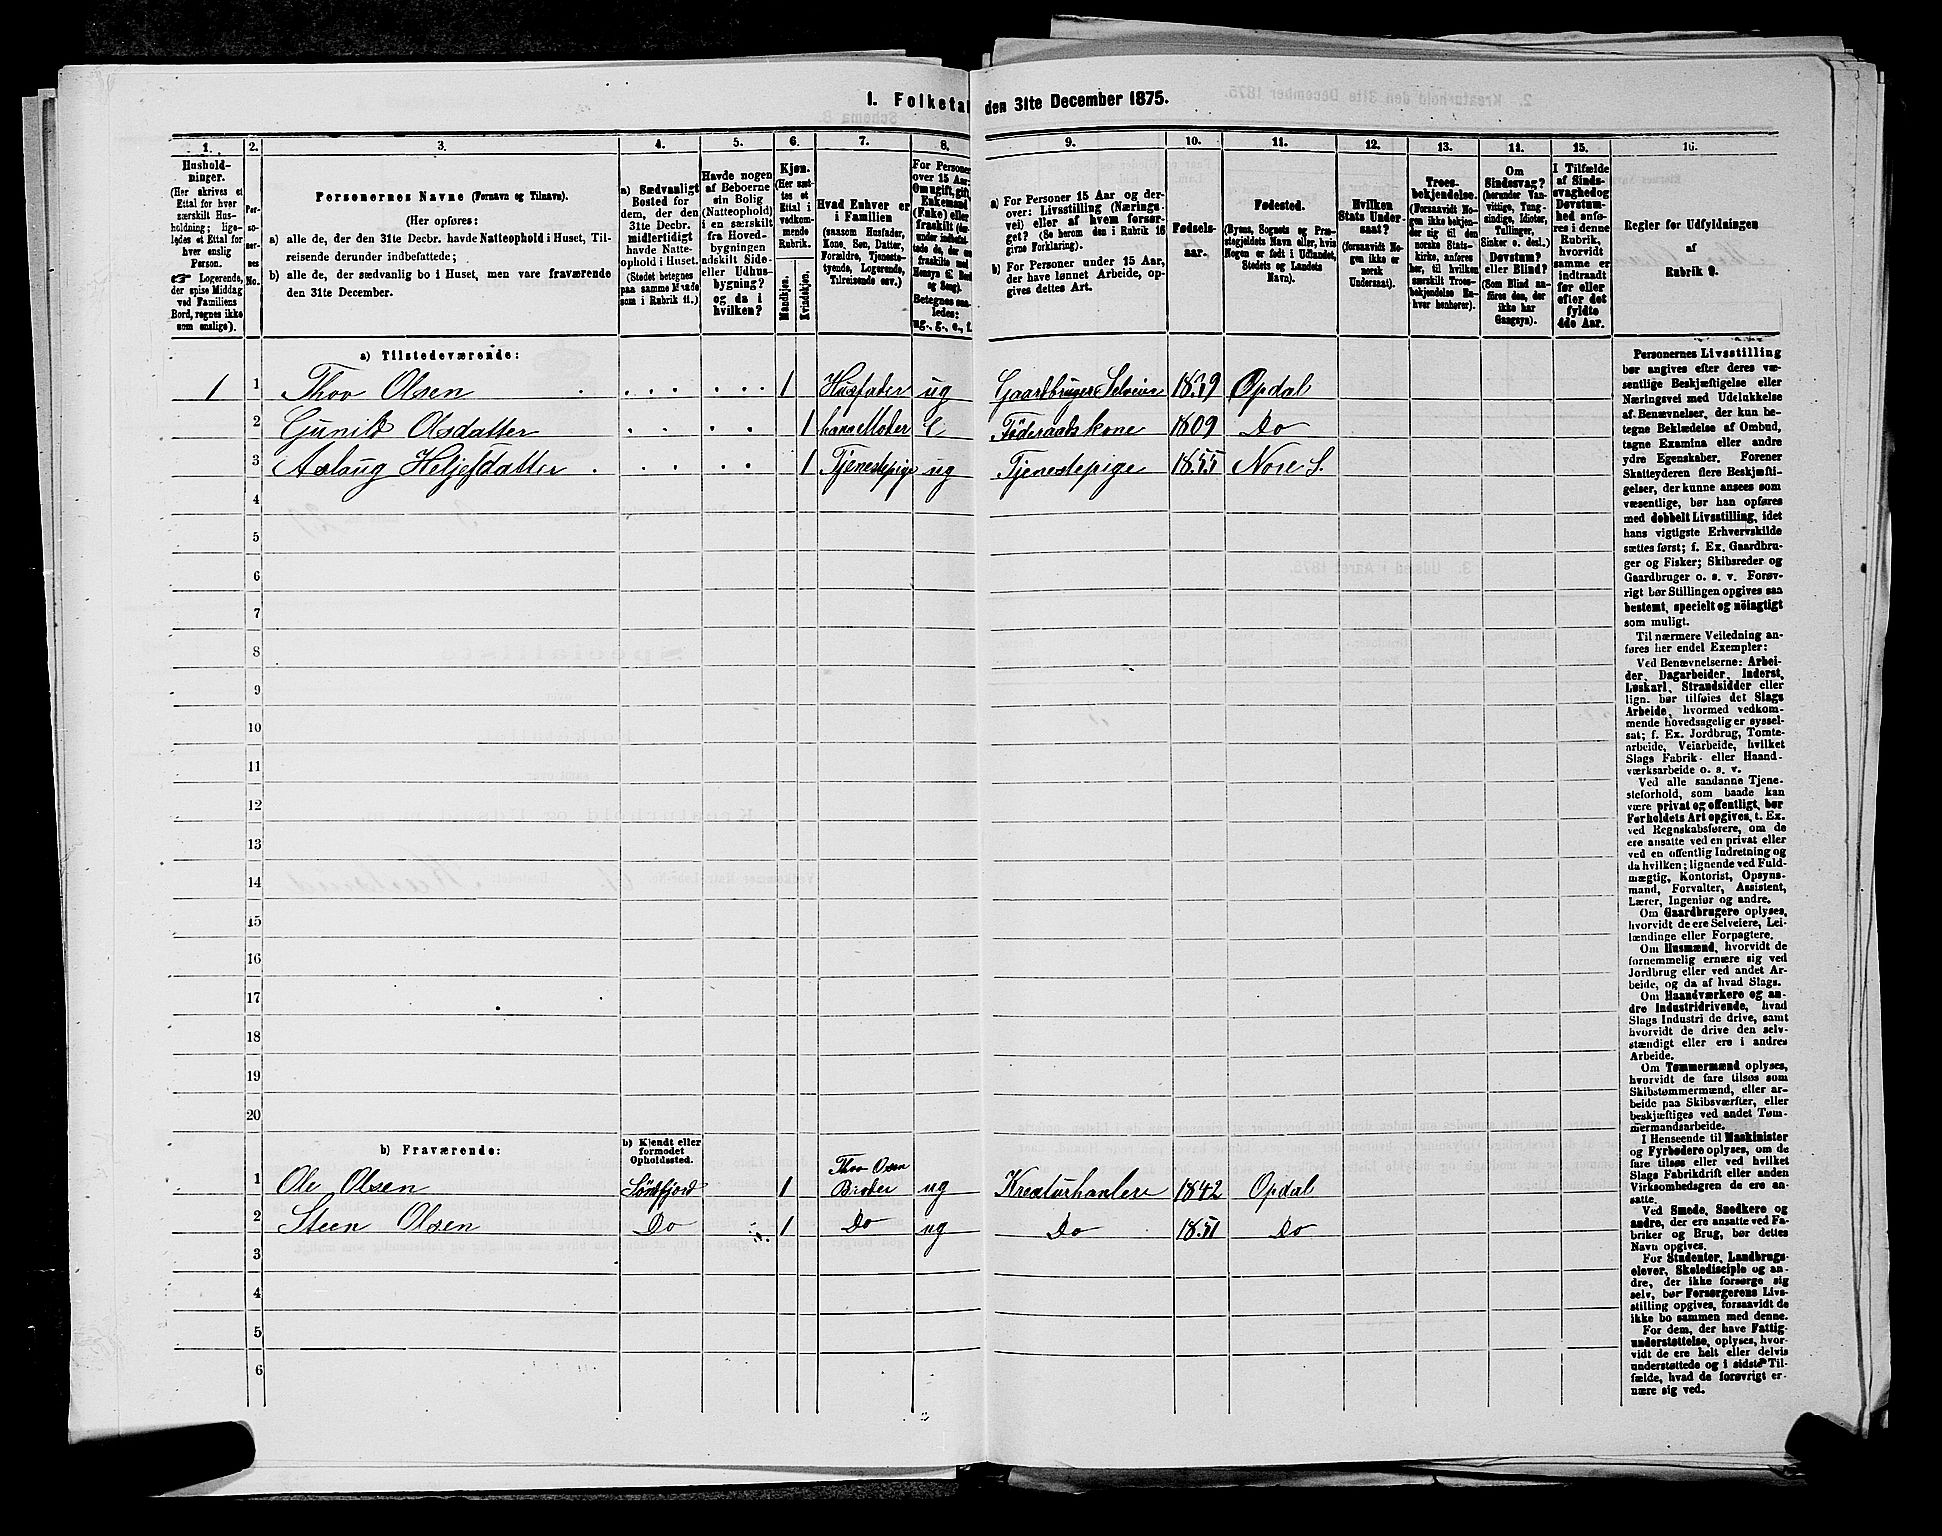 1. Folketal den 31te December 1875.
1. 2. 3. 4. 5. 6. 7. 8. 9. 10. 11. 12. 13. 14. 15. 16.
Hushold-
ninger.
(Her skrives et
Ettal for hver
særskilt Hus-
holdning; lige-
ledes et Ettal for
hver enslig
Person.
☞ Logerende,
der spise Middag
ved Familiens
Bord, regnes ikke
som enslige).
Per-
so-
ner-
nes
No.
Personernes Navne (Fornavn og Tilnavn).
(Her opføres:
a) alle de, der den 31te Decbr. havde Natteophold i Huset, Til-
reisende derunder indbefattede;
b) alle de, der sædvanlig bo i Huset, men vare fraværende
den 31te December.
a) Sædvanligt
Bosted for
dem, der den
31te Decbr.
midlertidigt
havde Natte-
ophold i Huset.
(Stedet betegnes
paa samme Maade
som i Rubrik 11.)
Havde nogen
af Beboerne
sin Bolig
(Natteophold)
i en særskilt
fra Hoved-
bygningen
adskilt Side-
eller Udhus-
bygning?
og da i
hvilken?
Kjøn.
(Her sæt-
tes et
Ettal i
vedkom-
mende
Rubrik.
Mandkjøn.
Kvindekjøn.
Hvad Enhver er
i Familien
(saasom Husfader,
Kone, Søn, Datter,
Forældre, Tjeneste-
tyende, Logerende,
Tilreisende osv.)
For Personer
over 15 Aar:
Om ugift, gift,
Enkemand
(Enke) eller
fraskilt
Betegnes saa-
ledes:
ug., g., e., f.
a) For Personer 15 Aar og der-
over: Livsstilling (Nærings-
vei) eller af hvem forsør-
get? (Se herom den i Rubrik 16
givne Forklaring).
b) For Personer under 15 Aar,
der have lønnet Arbeide, op-
gives dettes Art.
Fødsels-
aar.
Fødested.
(Byens, Sognets og Præ-
stegjeldets Navn eller, hvis
Nogen er født i Udlandet,
Stedets og Landets
Navn).
Hvilken
Stats Under-
saat?
(forsaavidt No-
gen ikke er
norsk
Undersaat).
Troes-
bekjendelse.
(Forsaavidt No-
gen ikke bekjen-
der sig til den
norske Stats-
kirke, anføres
her, til hvilken
særskilt Troes-
bekjendelse En-
hver henhører).
Om
Sindssvag?
(herunder Van-
vittige, Tung-
sindige, Idioter,
Sinker o. desl.)
Døvstum?
eller Blind?
(Som Blind an-
føres den, der
ikke har
Gangsyn).
I Tilfælde
af Sinds-
svaghed og
Døvstum-
hed anfø-
res i denne
Rubrik,
hvorvidt
samme er
indtraadt
før eller
efter det
fyldte
4de Aar.
Regler for Udfyldningen
af
Rubrik 9.
a) Tilstedeværende:
1 1 Thov Olsen 1 Husfader ug Gaardbruger Selveier 1839 Opdal
2 Gunild Olsdatter 1 hans Moder E Föderaadskone 1809 Do
3 Aslaug Heljesdatter 1 Tjenestepige ug Tjenestepige 1855 Nore S.
4
5
6
7
8
9
10
11
12
13
14
15
16
17
18
19
20
b) Fraværende:
b) Kjendt eller
formodet
Opholdssted.
1 Ole Olsen Söndfjord 1 Thov Olsen Broder ug Kreaturhandler 1842 Opdal
2 Steen Olsen Do 1 Do ug Do 1851 Do
3
4
5
6
Personernes Livsstilling
bør angives efter deres væ-
sentlige Beskjæftigelse eller
Næringsvei med Udelukkelse
af Benævnelser, der kun be-
tegne Beklædelse af Ombud,
tagne Examina eller andre
ydre Egenskaber. Forener
Skatteyderen flere Beskjæfti-
gelser, der kunne ansees som
væsentlige, bør han opføres
med dobbelt Livsstilling, idet
hans vigtigste Erhvervskilde
sættes først; f. Ex. Gaardbru-
ger og Fisker; Skibsreder og
Gaardbruger o. s. v. Forøv-
rigt bør Stillingen opgives saa
bestemt, specielt og nöiagtigt
som muligt.
Til nærmere Veiledning an-
føres her endel Exempler:
Ved Benævnelserne: Arbei-
der, Dagarbeider, Inderst,
Løskarl, Strandsidder eller
lign. bør tilføies det Slags
Arbeide, hvormed vedkom-
mende hovedsagelig er syssel-
sat; f. Ex. Jordbrug, Tomte-
arbeide, Veiarbeide, hvilket
Slags Fabrik- eller Haand-
værksarbeide o. s. v.
Ved alle saadanne Tjene-
steforhold, som baade kan
være privat og offentligt, bør
Forholdets Art opgives, t. Ex.
ved Regnskabsførere, om de
ere ansatte ved en privat eller
ved en offentlig Indretning og
da hvilken; lignende ved Fuld-
mægtig, Kontorist, Opsyns-
mand, Forvalter, Assistent,
Lærer, Ingeniør og andre.
Om Gaardbrugere oplyses,
hvorvidt de ere Selveiere, Lei-
lændinge eller Forpagtere.
Om Husmænd, hvorvidt de
fornemmelig ernære sig ved
Jordbrug eller ved andet Ar-
beide, og da af hvad Slags.
Om Haandværkere og an-
dre Industridrivende, hvad
Slags Industri de drive, samt
hvorvidt de drive den selv-
stændigt eller ere i andres
Arbeide.
Om Tømmermænd oplyses,
hvorvidt de fare tilsøs som
Skibstømmermænd, eller ar-
beide paa Skibsværfter, eller
beskjæftiges ved andet Tøm-
mermandsarbeide.
I Henseende til Maskinister
og Fyrbødere oplyses, om de
fare tilsøs eller ved hvilket
Slags Fabrikdrift eller anden
Virksomhedsgren de ere an-
satte.
Ved Smede, Snedkere og
andre, der ere ansatte ved Fa-
briker og Brug, bør dettes
Navn opgives.
For Studenter, Landbrugs-
elever, Skoledisciple og an-
dre, der ikke forsørge sig
selv, bør Forsørgerens Livs-
stilling opgives, forsaavidt de
ikke bo sammen med denne.
For dem, der have Fattig-
understøttelse, oplyses, hvor-
vidt de ere helt eller delvis
understøttede og i sidste Til-
fælde, hvad de forøvrigt er-
nære sig ved.